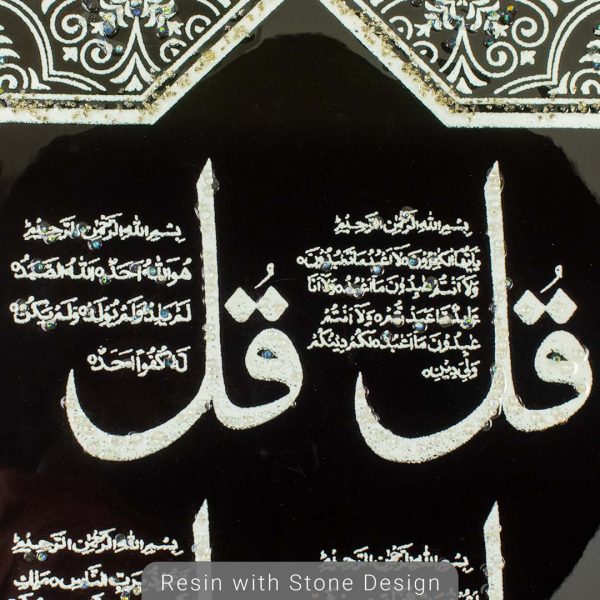 قُل
بِسْمِ اللهِ الرَّحْمٰنِ الرَّحِيْمِ
يٰاَيُّهَا الْكٰفِرُوْنَ لَا اَعْبُدُ مَا تَعْبُدُوْنَ
وَلَا اَنْتُمْ عٰبِدُوْنَ مَا اَعْبُدُ وَلَا اَنَا
عَابِدٌ مَّا عَبَدْتُّمْ وَلَا اَنْتُمْ
عٰبِدُوْنَ مَا اَعْبُدُ لَكُمْ دِيْنُكُمْ
وَلِيَ دِيْنِ
قُل
بِسْمِ اللهِ الرَّحْمٰنِ الرَّحِيْمِ
هُوَ اللهُ اَحَدٌ اَللهُ الصَّمَدُ
لَمْ يَلِدْ وَلَمْ يُوْلَدْ وَلَمْ يَكُنْ
لَهٗ كُفُوًا اَحَدٌ
بِسْمِ اللهِ الرَّحْمٰنِ الرَّحِيْمِ
بِسْمِ اللهِ الرَّحْمٰنِ الرَّحِيْمِ
بِرَبِّ النَّاسِ مَلِكِ
Resin with Stone Design